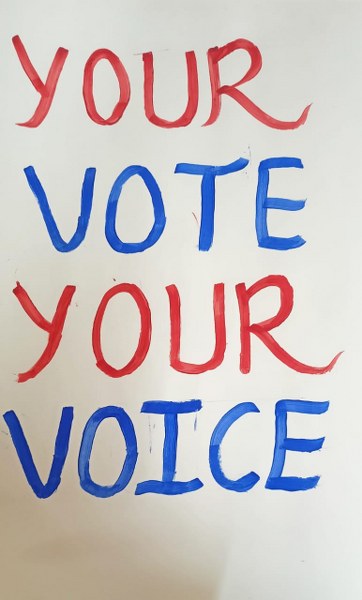 YOUR
VOTE
YOUR
VOICE